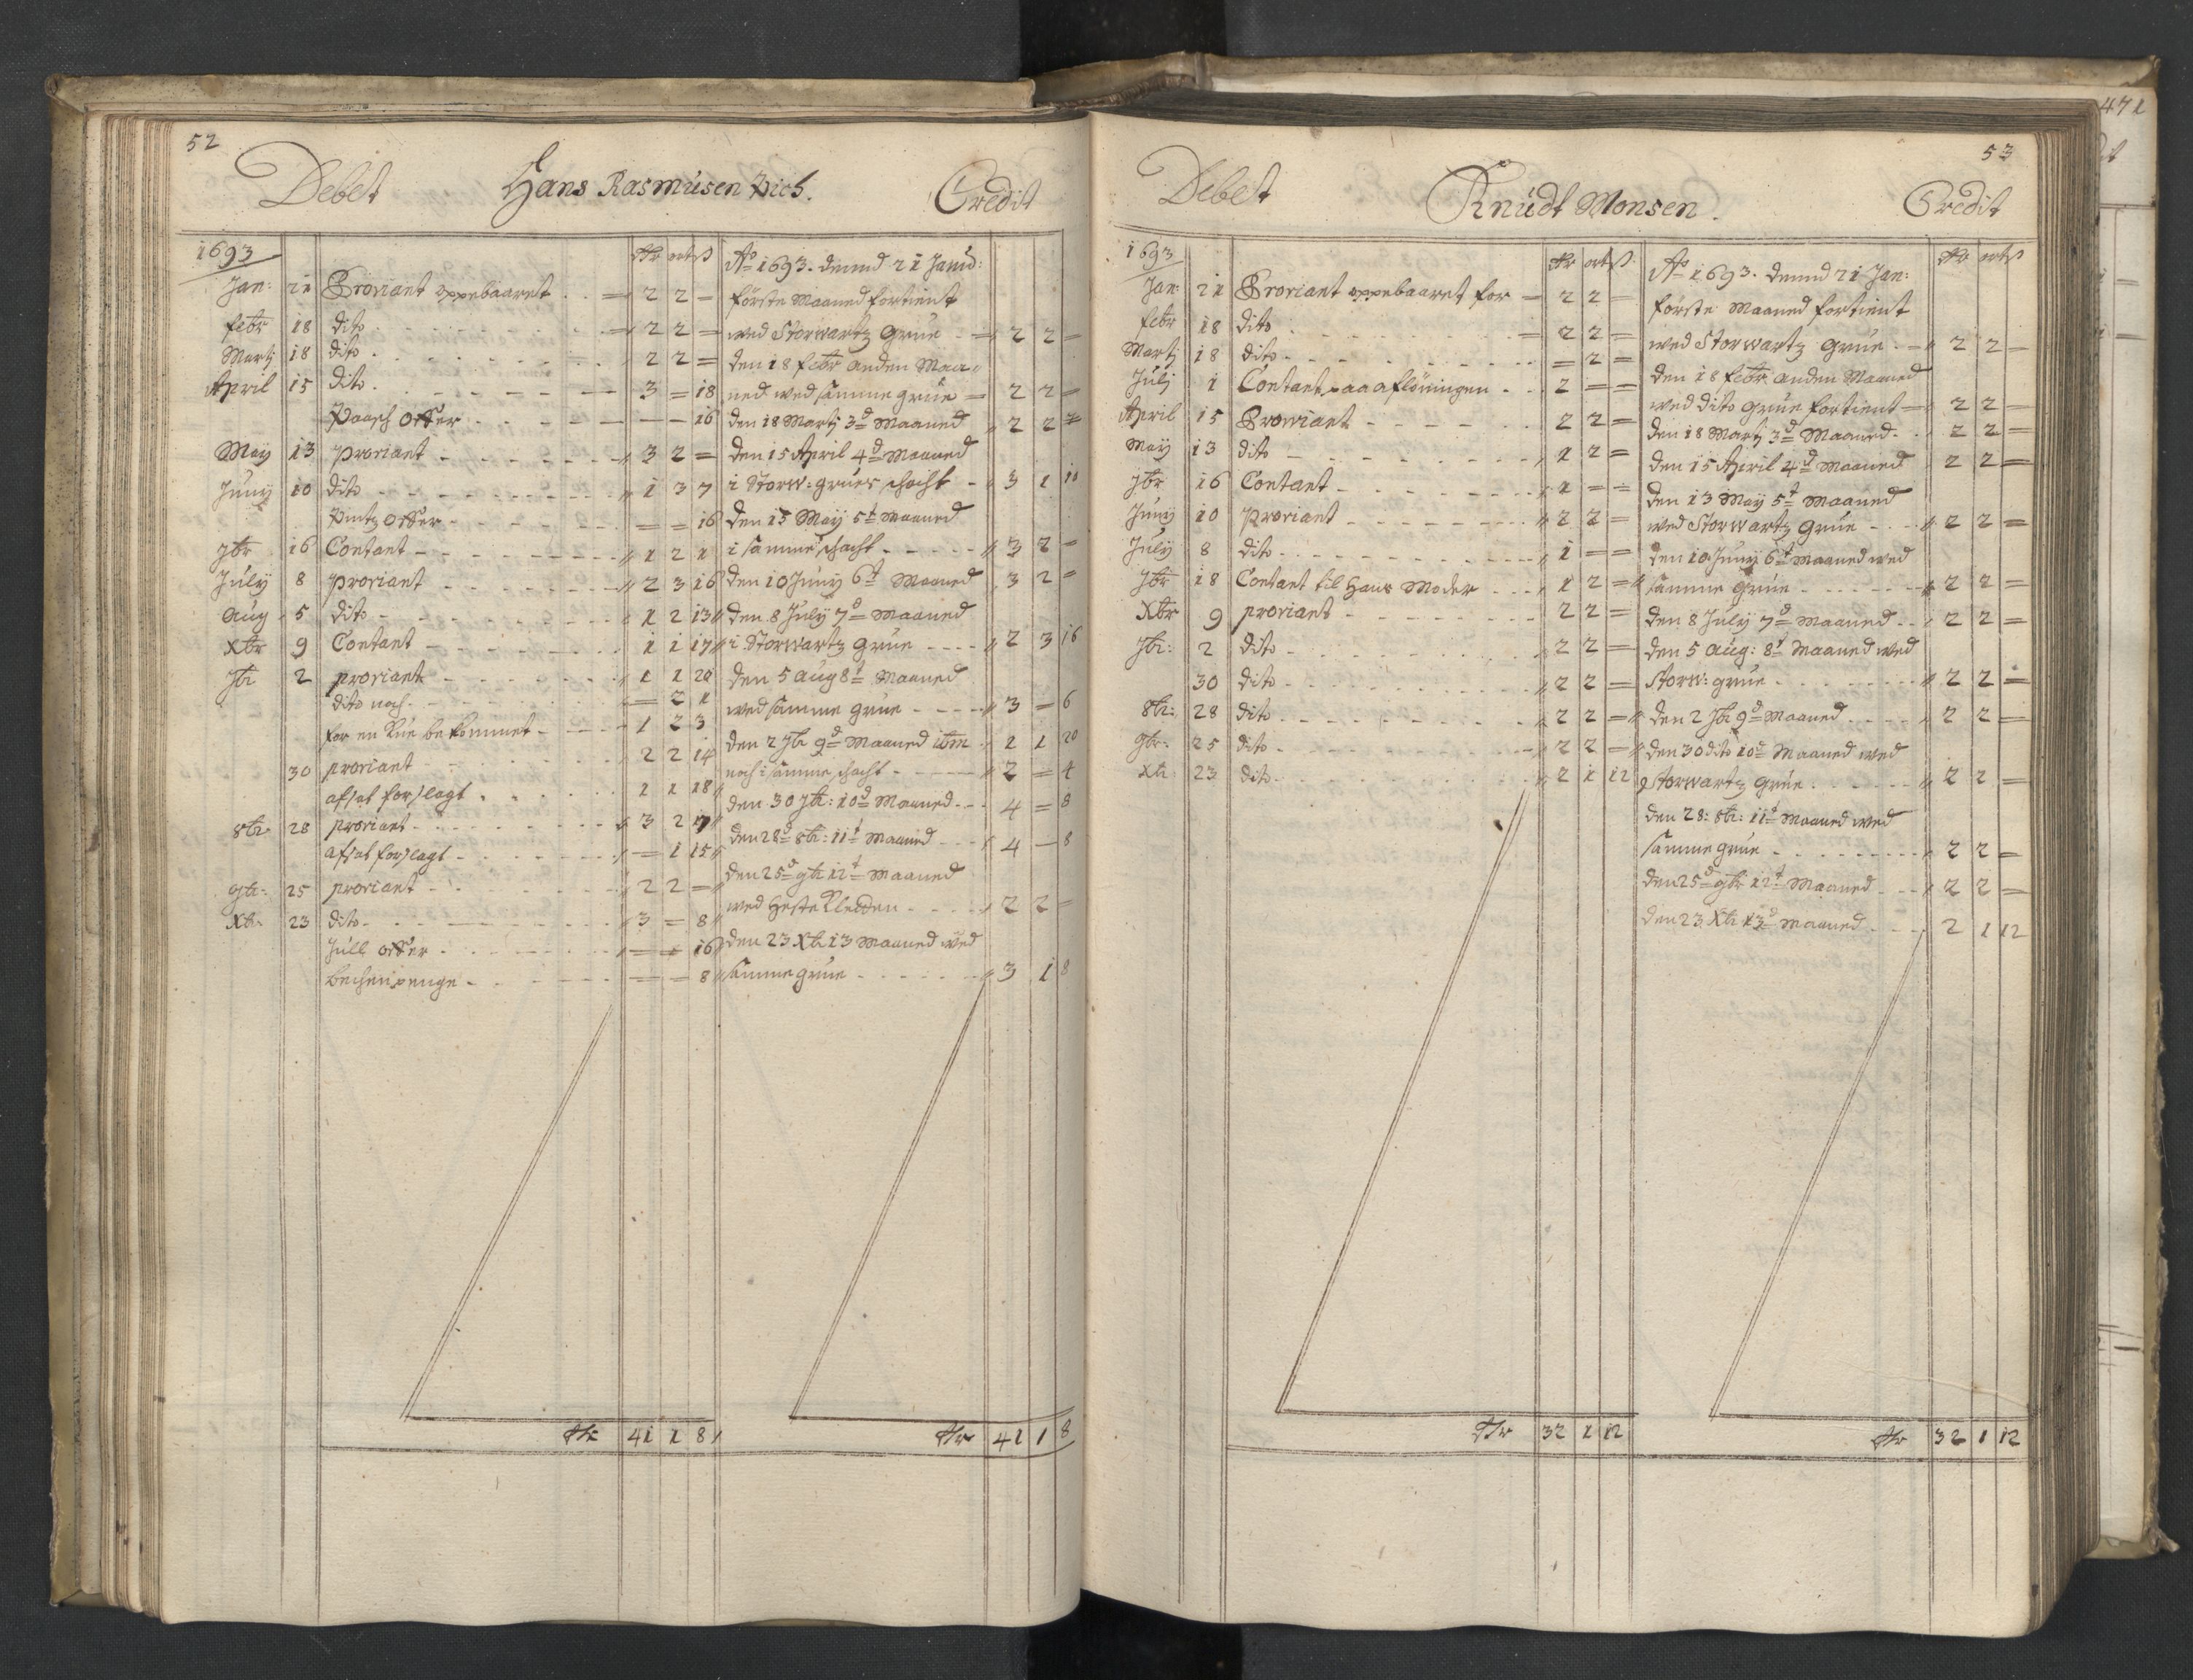 52
Debet Hans Rasmusen Pich. Credit
1693 Rdr ort ß
Jan: 21 Proviant oppebaaret . . = 2 2 =
febr 18 dito = 2 2 =
Martj 18 dito 2 2 =
April 15 dito 3 = 18
Paasch Offer — — 16
May 13 proviant 3 2 =
Juny 10 dito 1 3 7
Pintz Offer = = 16
7br 16 Contant 1 2 1
July 8 proviant 2 3 16
Aug 5 dito 1 2 13
Xbr 9 Contant 1 1 17
7br 2 proviant 1 1 20
dito noch = 2 1
for en Kue bekommet 1 2 3
30 proviant 2 2 14
afsat forslagt 1 1 18
8br 28 proviant 3 2 17
afsat forslagt = 1 15
9br: 25 proviant 2 2 =
Xbr 23 dito 3 = 8
Jull offer = = 16
Bechenpenge = = 8
Rdr 41 1 8
Ao 1693. dend 21 Janu:
förste Maaned fortient
wed Storwartz Grue = 2 2 =
den 18 febr anden Maa=
ned wed samme grue = 2 2 =
den 18 Martj 3d Maaned 2 2 =
den 15 April 4d Maaned
i Storw: grues schacht 3 1 10
den 13 May 5t Maaned
i samme schacht 3 2 =
den 10 Juny 6t Maaned 3 2 =
den 8 July 7d Maaned
i Storwartz Grue 2 3 16
den 5 aug 8t Maaned
wed samme grue 3 = 6
den 2 7br 9d Maaned 1 1 20
noch i samme schacht 2 = 4
den 30 7br: 10d Maaned 4 = 8
den 28d 8br: 11t Maaned 4 — 8
den 25d 9br 12t Maaned
wed Hesteklecten 2 2 =
den 23 Xbr 13 Maaned wed
samme grue 3 1 8
Rdr 41 1 8
53
Debet Knudt Monsen. Credit
1693 Rdr ort ß
Jan: 21 Proviant oppebaaret for = 2 2 =
febr 18 dito = 2 2 =
Martj 18 dito = 2 =
Julj 1 Contant paa aflöningen 2 = =
April 15 Proviant 2 2 =
May 13 dito 1 2 =
7br 16 Contant 1 = =
Juny 10 proviant 2 2 =
July 8 dito 1 = =
7br 18 Contant til Hans Moder 1 2 =
Xbr 9 proviant 2 2 =
7br: 2 dito 2 2 =
30 dito 2 2 =
8br: 28 dito 2 2 =
9br: 25 dito 2 2 =
Xbr 23 dito 2 1 12
Rdr 32 1 12
Ao 1693. dend 21 Jan: Rdr ort ß
förste Maaned fortient
wed Storwartz grue 2 2 =
den 18 febr anden Maaned
wed dito grue fortient = 2 2 =
den 18 Martj 3d Maaned 2 2 =
den 15 April 4d Maaned 2 2 =
den 13 May 5t Maaned
wed Storwartz Grue 2 2 =
den 10 Juny 6t Maaned wed
samme grue 2 2 =
den 8 July 7d Maaned 2 2 =
den 5 aug: 8t Maaned wed
Storw: grue 2 2 =
den 2 7br 9d Maaned 2 2 =
den 30 dito 10d Maaned wed
Storwartz grue 2 2 =
den 28: 8br: 11t Maaned wed
samme grue 2 2 =
den 25d 9br 12t Maaned 2 2 =
den 23 Xbr 13d Maaned 2 1 12
Rdr 32 1 12
471